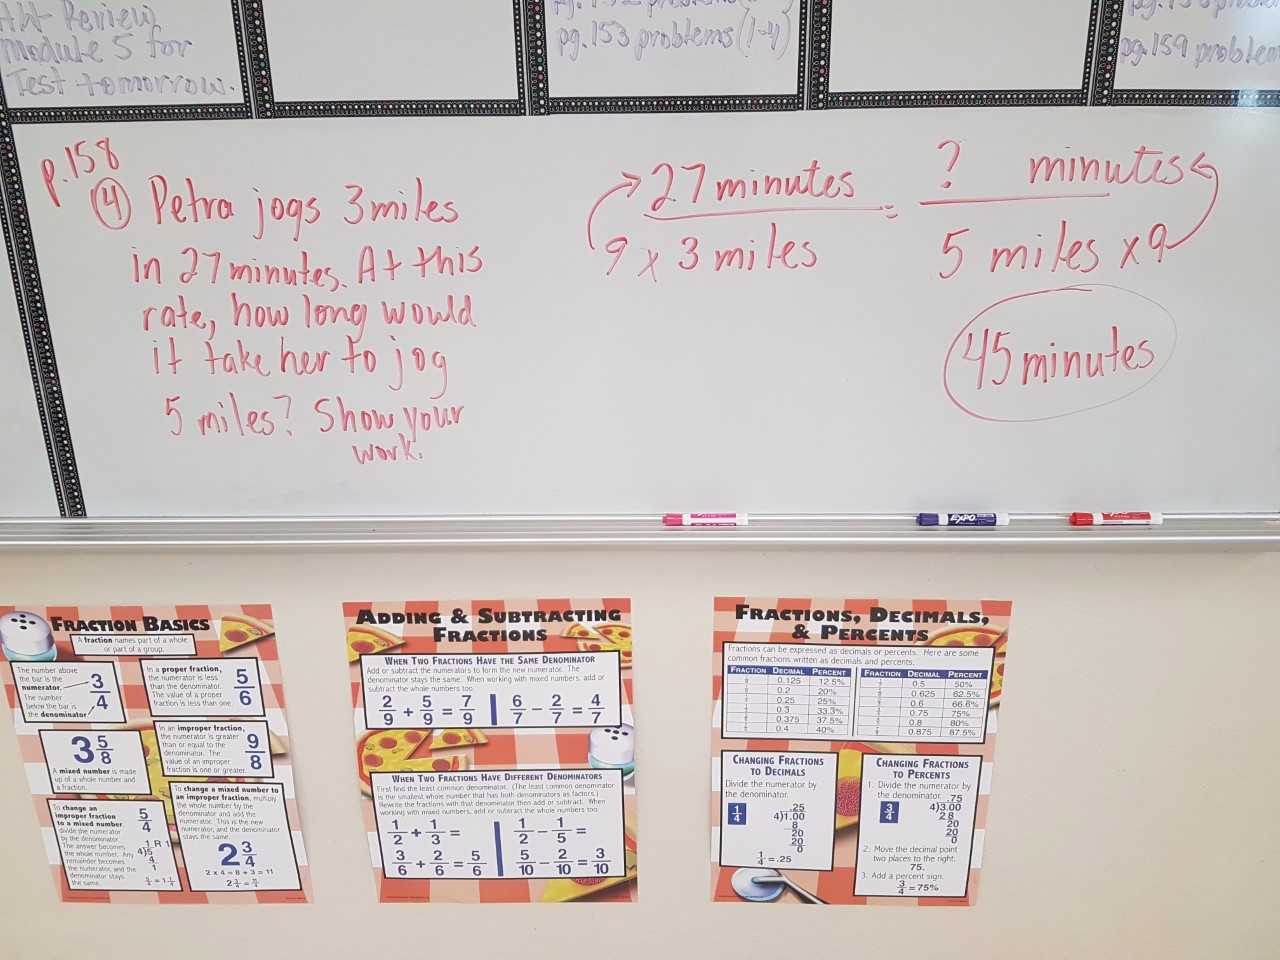 HW Review
Module 5 for
Test tomorrow.
pg. 153 problems (1-4)
pg. 159 problem
p.158
④ Petra jogs 3 miles
in 27 minutes. At this
rate, how long would
it take her to jog
5 miles? Show your
work.
27 minutes = ? minutes
9 x 3 miles 5 miles x 9
45 minutes
EXPO
FRACTION BASICS
A fraction names part of a whole
or part of a group.
The number above
the bar is the
numerator.
The number
below the bar is
the denominator
3/4
In a proper fraction,
the numerator is less
than the denominator.
The value of a proper
fraction is less than one.
5/6
3 5/8
A mixed number is made
up of a whole number and
a fraction.
In an improper fraction,
the numerator is greater
than or equal to the
denominator. The
value of an improper
fraction is one or greater.
9/8
To change an
improper fraction
to a mixed number,
divide the numerator
by the denominator.
The answer becomes
the whole number. Any
remainder becomes
the numerator, and the
denominator stays
the same.
5/4
1 R 1
4)5
4
1
5/4 = 1 1/4
To change a mixed number to
an improper fraction, multiply
the whole number by the
denominator and add the
numerator. This is the new
numerator, and the denominator
stays the same.
2 3/4
2 x 4 = 8 + 3 = 11
2 3/4 = 11/4
ADDING & SUBTRACTING
FRACTIONS
WHEN TWO FRACTIONS HAVE THE SAME DENOMINATOR
Add or subtract the numerators to form the new numerator. The
denominator stays the same. When working with mixed numbers, add or
subtract the whole numbers too.
2/9 + 5/9 = 7/9 6/7 – 2/7 = 4/7
WHEN TWO FRACTIONS HAVE DIFFERENT DENOMINATORS
First find the least common denominator. (The least common denominator
is the smallest whole number that has both denominators as factors.)
Rewrite the fractions with that denominator then add or subtract. When
working with mixed numbers, add or subtract the whole numbers too.
1/2 + 1/3 = 1/2 – 1/5 =
3/6 + 2/6 = 5/6 5/10 – 2/10 = 3/10
FRACTIONS, DECIMALS,
& PERCENTS
Fractions can be expressed as decimals or percents. Here are some
common fractions written as decimals and percents.
FRACTION DECIMAL PERCENT FRACTION DECIMAL PERCENT
0.125 12.5% 0.5 50%
0.2 20% 0.625 62.5%
0.25 25% 0.6 66.6%
0.3 33.3% 0.75 75%
0.375 37.5% 0.8 80%
0.4 40% 0.875 87.5%
CHANGING FRACTIONS
TO DECIMALS
Divide the numerator by
the denominator.
1/4
.25
4)1.00
8
20
20
0
1/4 = .25
CHANGING FRACTIONS
TO PERCENTS
1. Divide the numerator by
the denominator.
3/4
.75
4)3.00
28
20
20
0
2. Move the decimal point
two places to the right.
75.
3. Add a percent sign.
3/4 = 75%